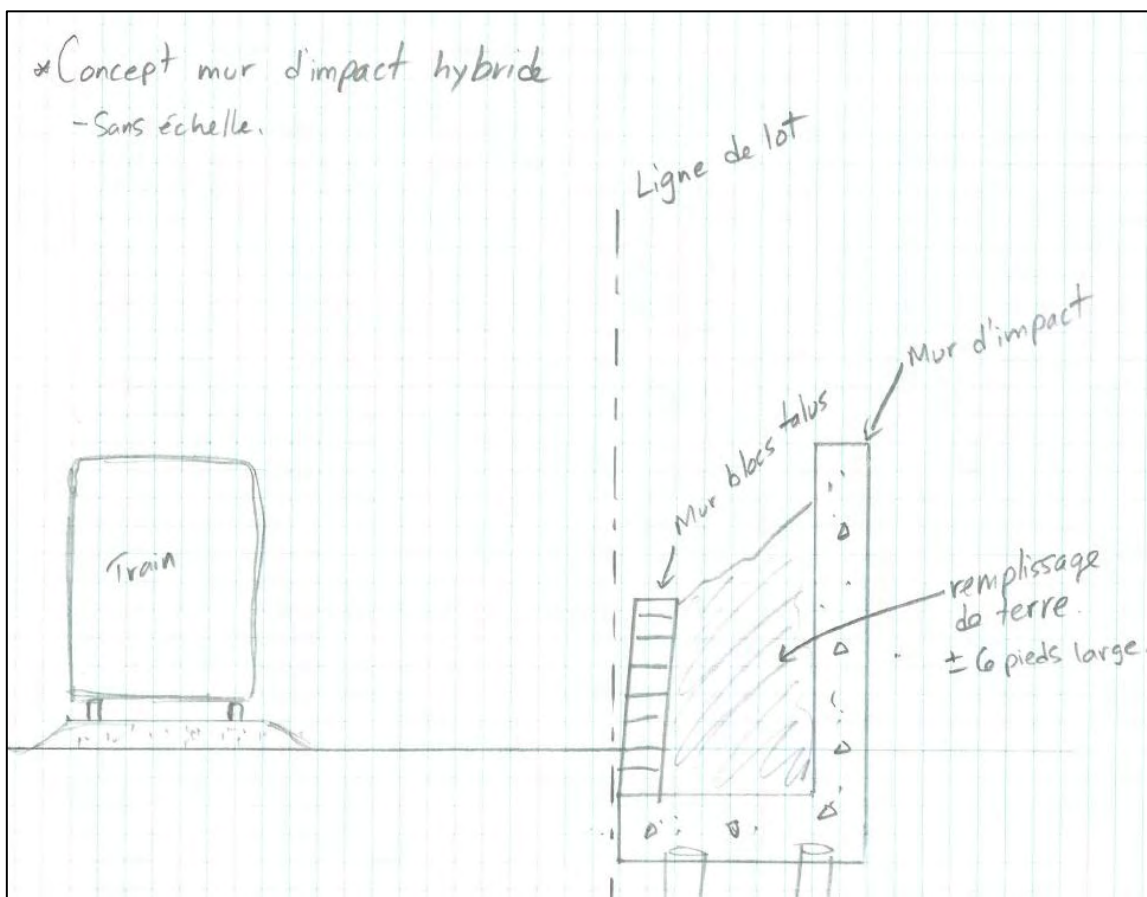 *Concept mur d'impact hybride
-Sans échelle.
Ligne de lot
Mur d'impact
Mur blocs talus
Train
remplissage
de terre.
± 6 pieds large.